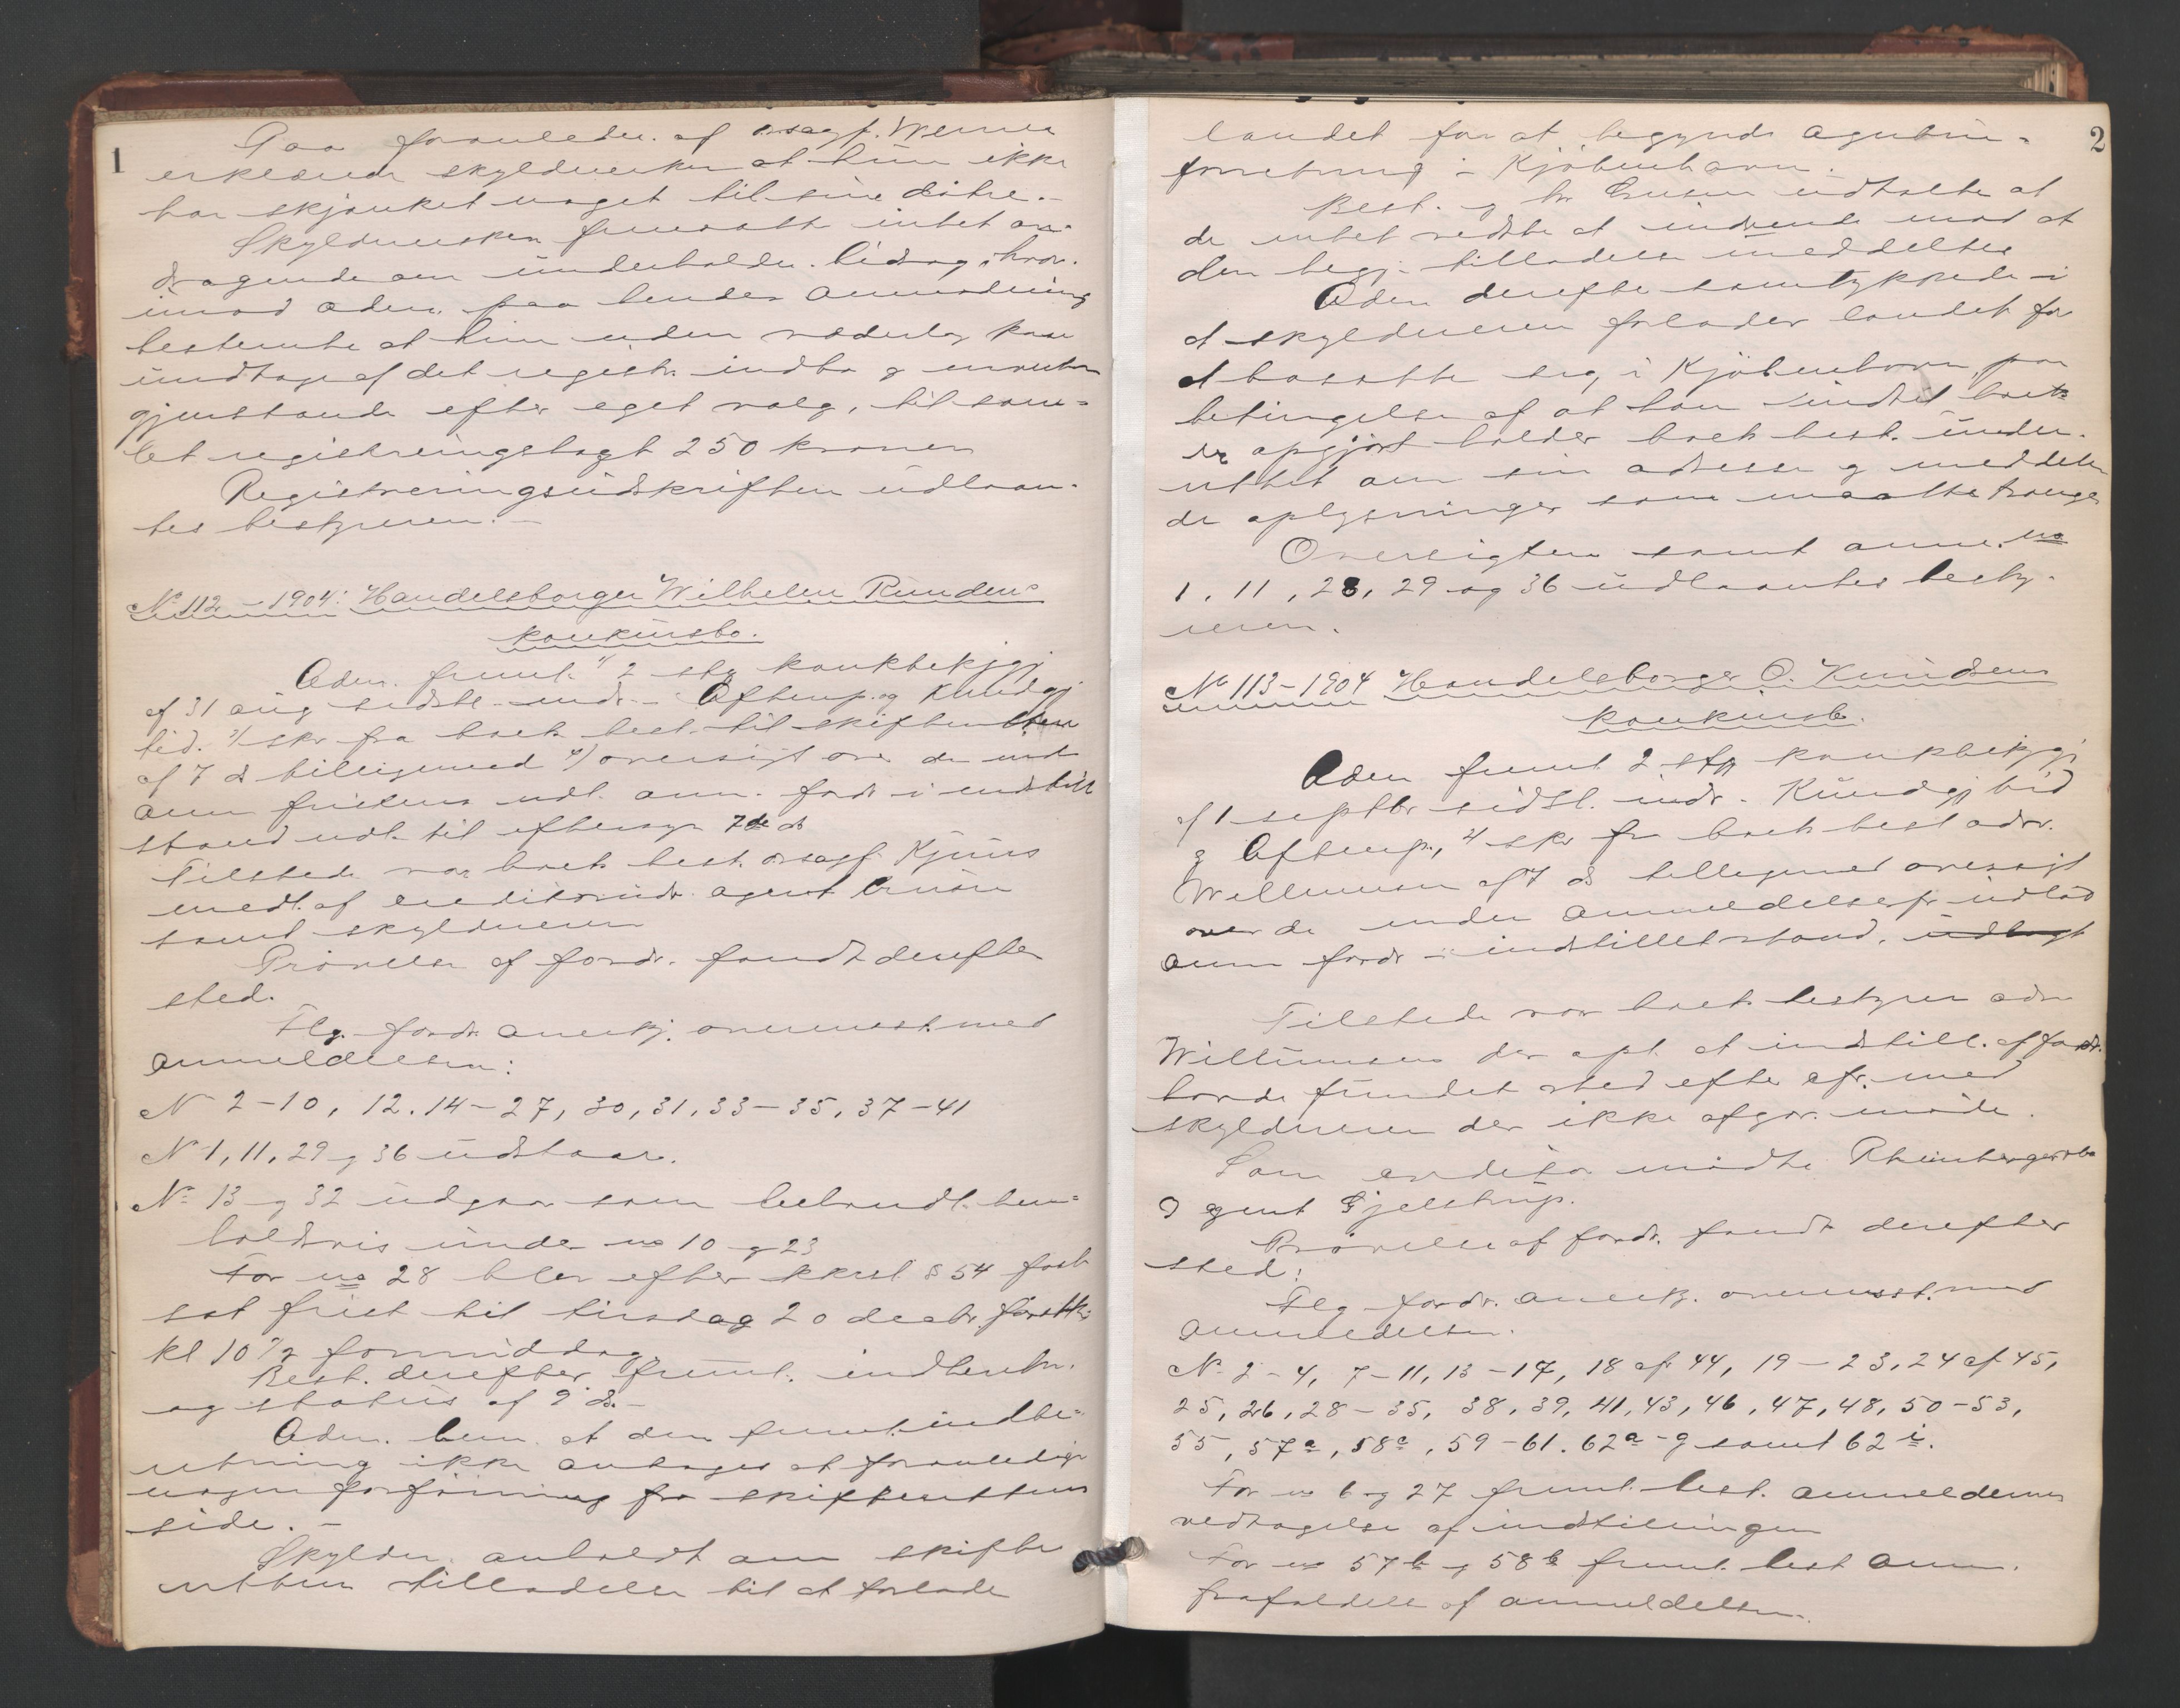 1
Paa foranledn. af o.sagf. Werner
erklærede skyldnersken at hun ikke
har skjænket noget til sine døtre.–
Skyldnersken fremsatte intet an=
dragende om underholdn. bidrag, hvor.
imod adm. paa hendes anmodning
bestemte at hun uden vederlag kan
undtage af det registr. indbo g
gjenstande efter eget valg, til sam=
let registreringstaxt 250 kroner
Registreringsudskriften udlaan-
tes bestyreren.–
No 112 – 1904: Handelsborger Wilhelm Rundens
konkursbo.
Adm. freml. 1/ 2 stg konkbekjgj
af 31 aug sidstl. indr. i Aftenp. og Kundgj
tid. 3/ skr fra boets best. til skifteretten
af 7 ds tilligemed 4/ oversigt over de ved
anm fristens udl. anm. fordr i indstill
stand udl. til eftersyn 7de ds
Tilstede var boets best. o.sagf. Kjuus
medl. af creditorudv. agent Crusin
samt skyldneren
Prøvelse af fordr. fandt derefter
sted.
Flg. fordr. anerkj. overensst. med
anmeldelsen:
No 2–10, 12. 14–27, 30, 31, 33–35, 37–41
No 1, 11, 29 g 36 udstaar.
No 13 g 32 udgaar som behandl. hen=
holdsvis under no 10 g 23
For no 28 blev efter kkrsl § 54 fast
sat frist til tirsdag 20 decbr. førstk.
kl 10 1/2 formiddag.
Best. derefter freml. indberetn.
og status af 9 ds.–
Adm. bem. at den freml. indbe=
retning ikke antages at foranledige
nogen forføining fra skifterettens
side.–
Skyldn. anholdt om skifte
rettens tilladelse til at forlade
2
landet for at begynde agentur=
forretning i Kjøbenhavn.
Best. g hr Crusin udtalte at
de intet vidste at indvende mod at
den begj. tilladelse meddeltes
Adm derefter samtykkede i
at skyldneren forlader landet for
at bosætte sig i Kjøbenhavn paa
betingelse af at han indtil boet
er opgjort holder boets best. under-
rettet om sin adresse g meddeler
de oplysninger som maatte trænges
Oversigten samt anm. no
1, 11, 28, 29 og 36 udlaantes besty-
reren.
No 113–1904 Handelsborger O. Knudsens
konkursb.
Adm freml. 2 stg konkbekjgj
af 1 septbr sidstl. indr. i Kundgj tid
g Aftenp., 2/ skr fra boets best adv.
Willumsen af 7 ds tilligemed oversigt
over de under anmeldelsesfr. udløb
anm fordr i indstillet stand, udlagt
Tilstede var boets bestyrer adv
Willumsen der opl. at indstill. af fordr.
havde fundet sted efter afr. med
skyldneren der ikke afgav møde.
Som creditor mødte
agent Gjelstrup.
Prøvelse af fordr. fandt derefter
sted:
Flg fordr. anerkj. overensst. med
anmeldelsen.
No 2–4, 7–11, 13–17, 18 af 44, 19–23, 24 af 45,
25, 26, 28–35, 38, 39, 41, 43, 46, 47, 48, 50–53,
55, 57a, 58a, 59–61. 62a–g samt 62 i.
For no 6 g 27 freml. best. anmeldernes
vedtagelse af indstillingen
For no 57b g 58b freml. best anm.
frafaldelse af anmeldelsen.